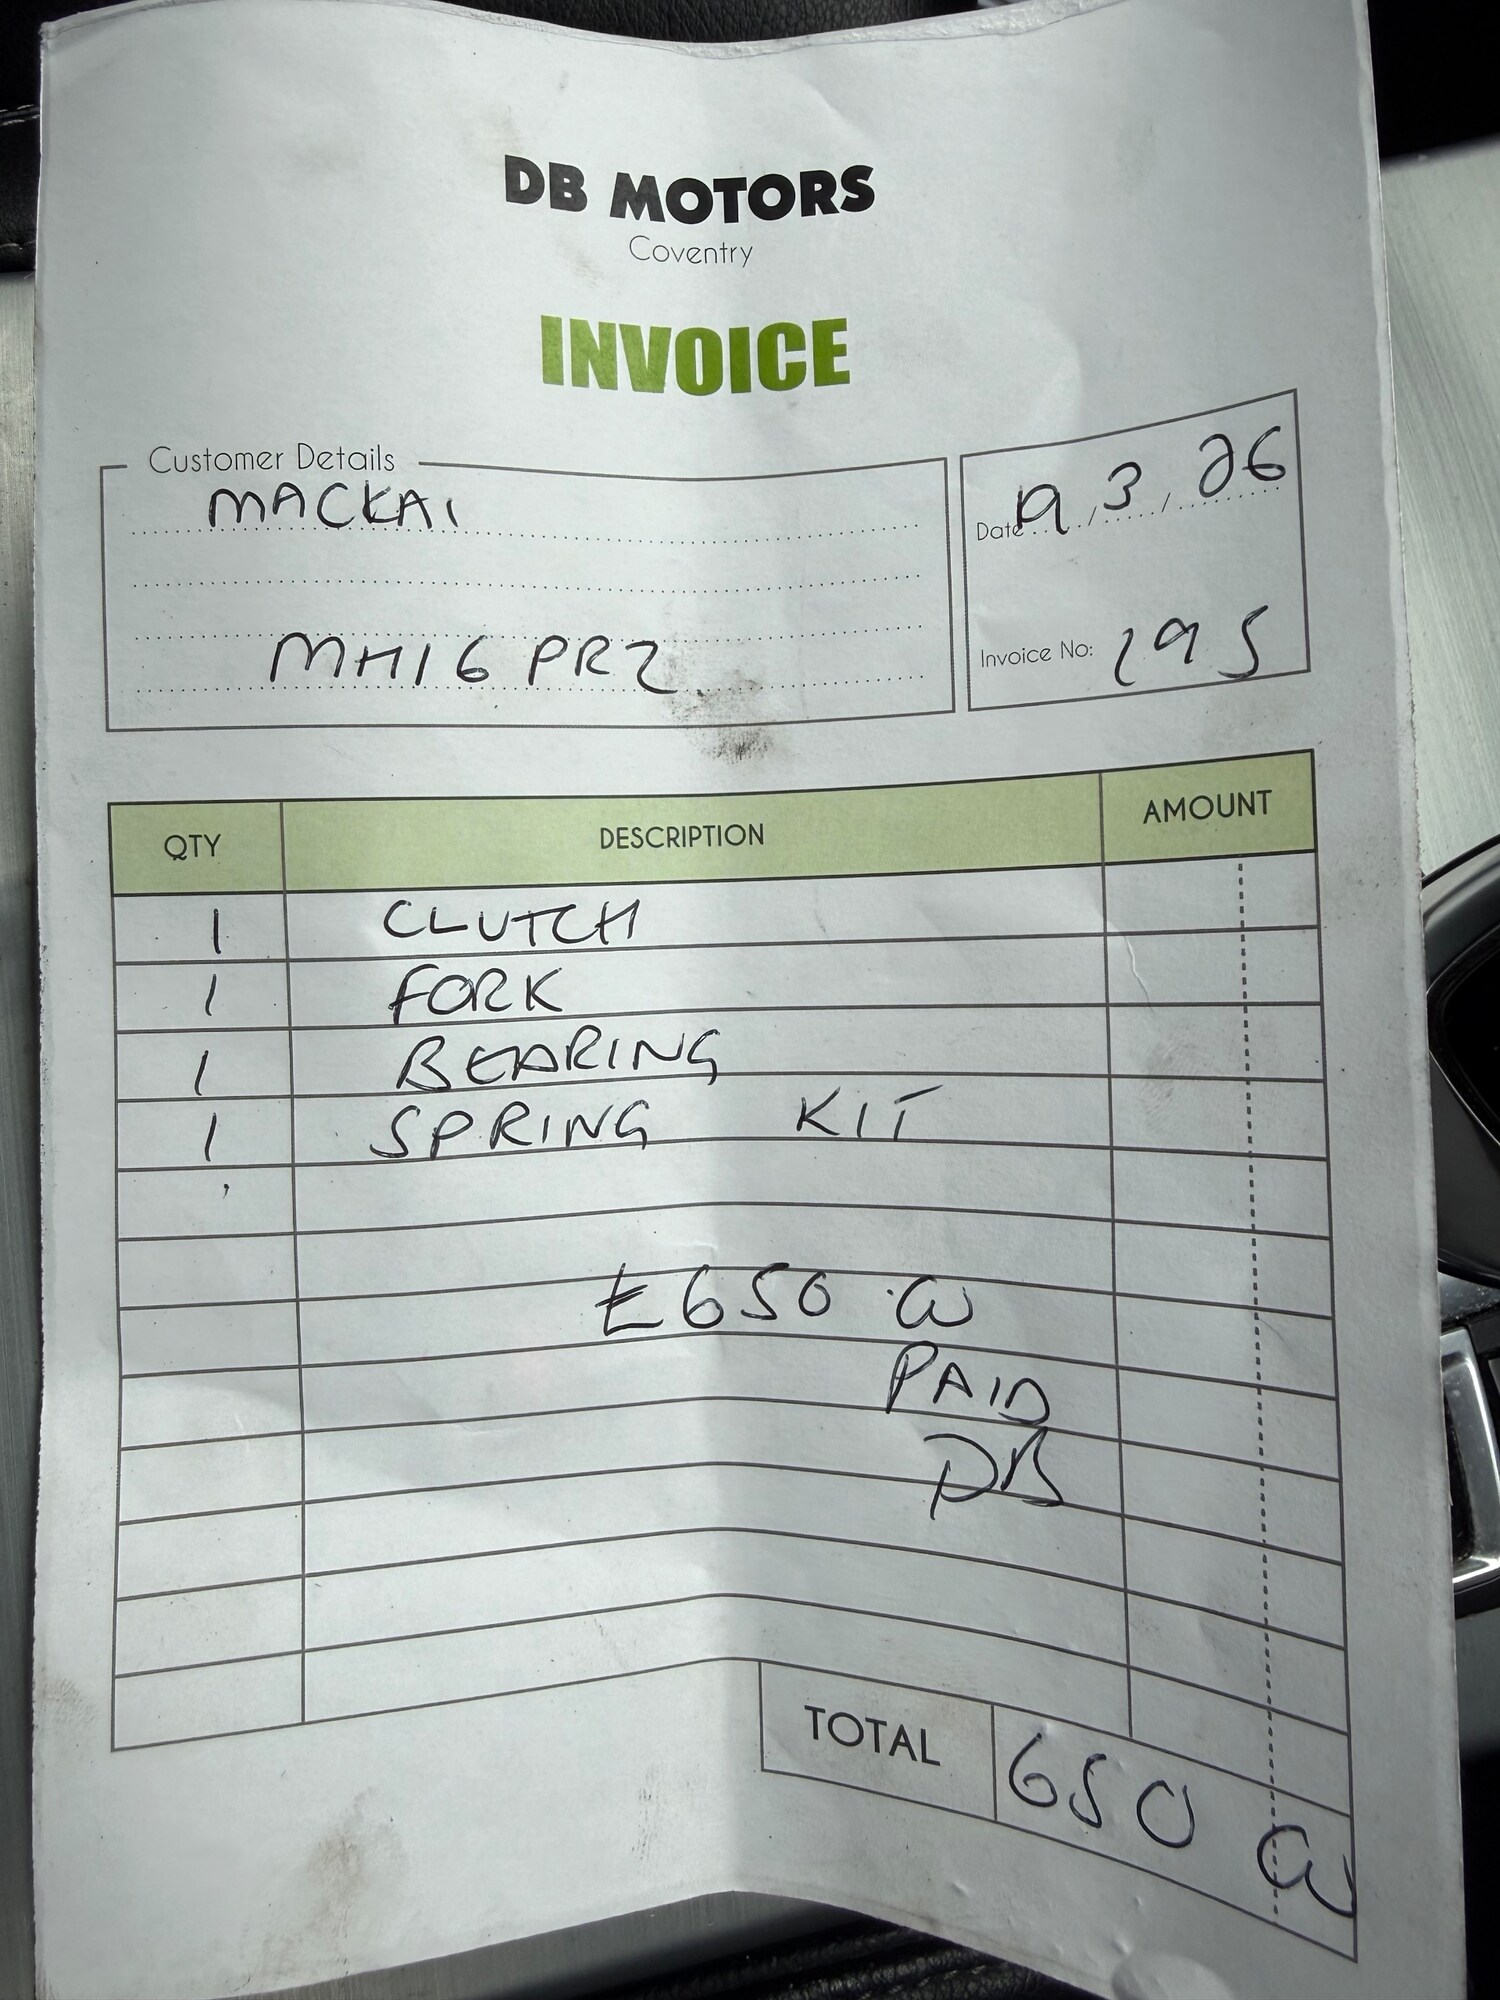 DB MOTORS
Coventry
INVOICE
Customer Details
MACKAI
MH16 PRZ
Date 19/3/26
Invoice No: 195
QTY DESCRIPTION AMOUNT
1 CLUTCH
1 FORK
1 BEARING
1 SPRING KIT
£650.00
PAID
DB
TOTAL 650 00